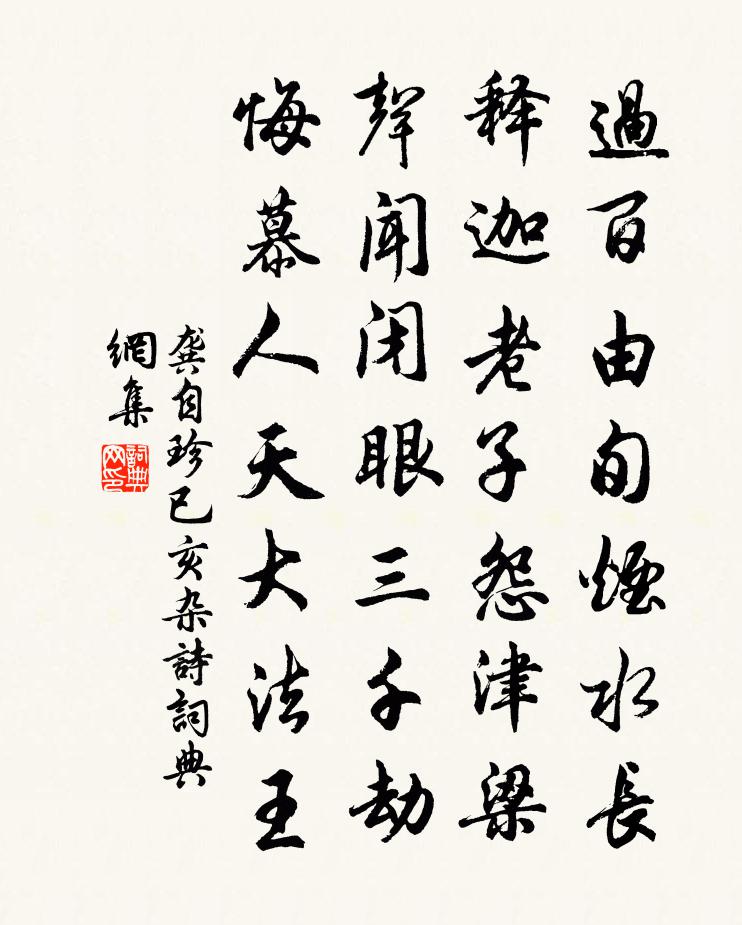 過百由旬煙水長
释迦老子怨津梁
聲聞闭眼三千劫
悔慕人天大法王
龔自珍己亥杂詩詞典
網集
詞典网印